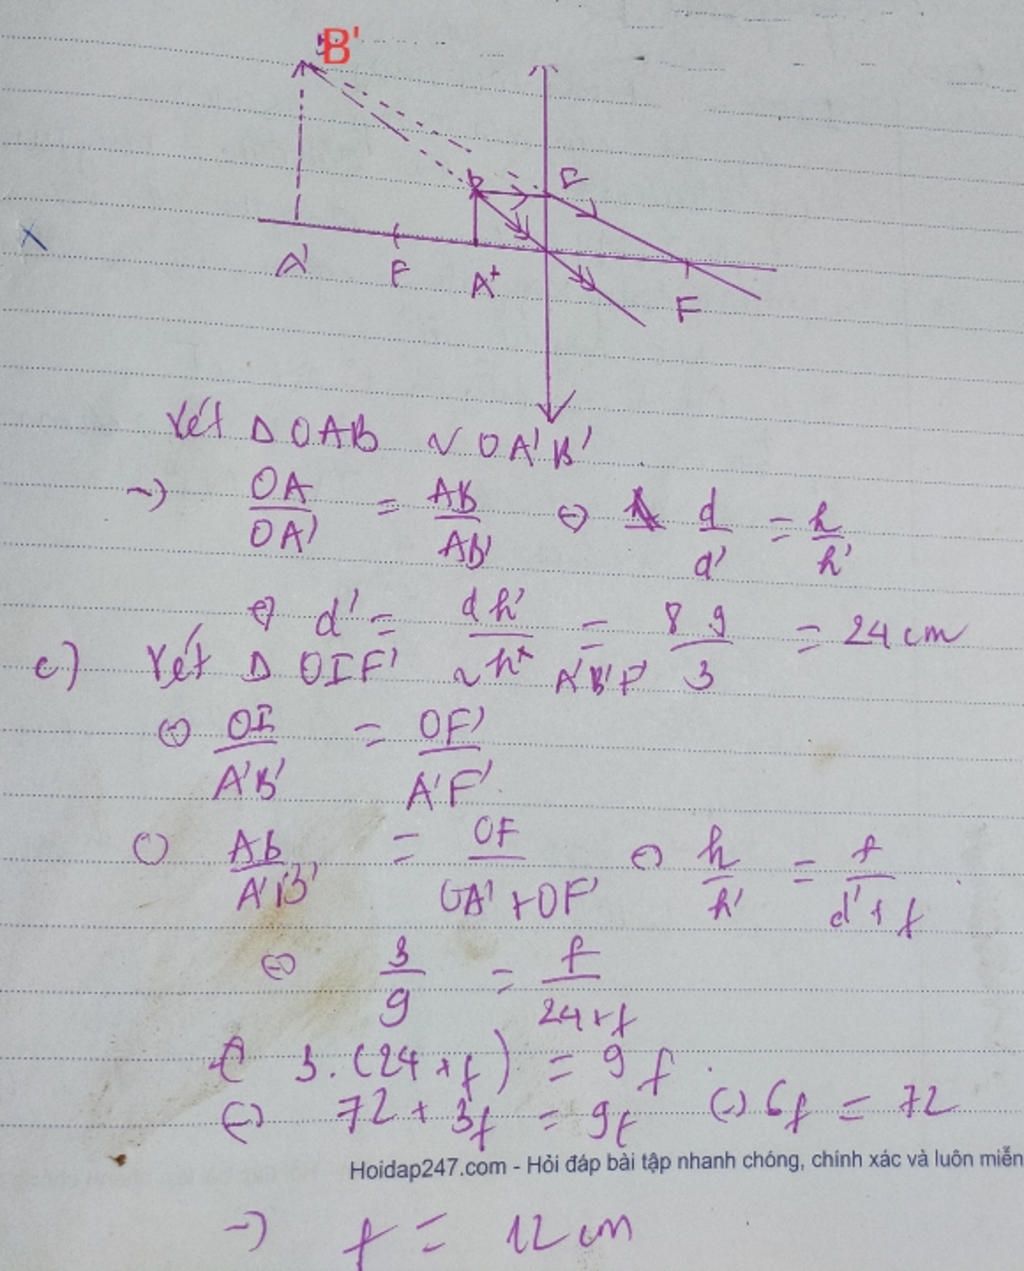 B'
B I
A' F A F
Xét Δ OAB ~ OA'B'
-> OA/OA' = AB/AB' <=> d/d' = h/h'
<=> d' = dh'/h = 8 9/3 = 24 cm
c) Xét Δ OIF' ~ A'B'F'
<=> OI/A'B' = OF'/A'F'
AB/A'B' = OF/OA'+OF' <=> h/h' = f/d'+f
<=> 3/9 = f/24+f
3.(24+f) = 9f
<=> 72 + 3f = 9f <=> 6f = 72
Hoidap247.com - Hỏi đáp bài tập nhanh chóng, chính xác và luôn miễn
-> f = 12 cm